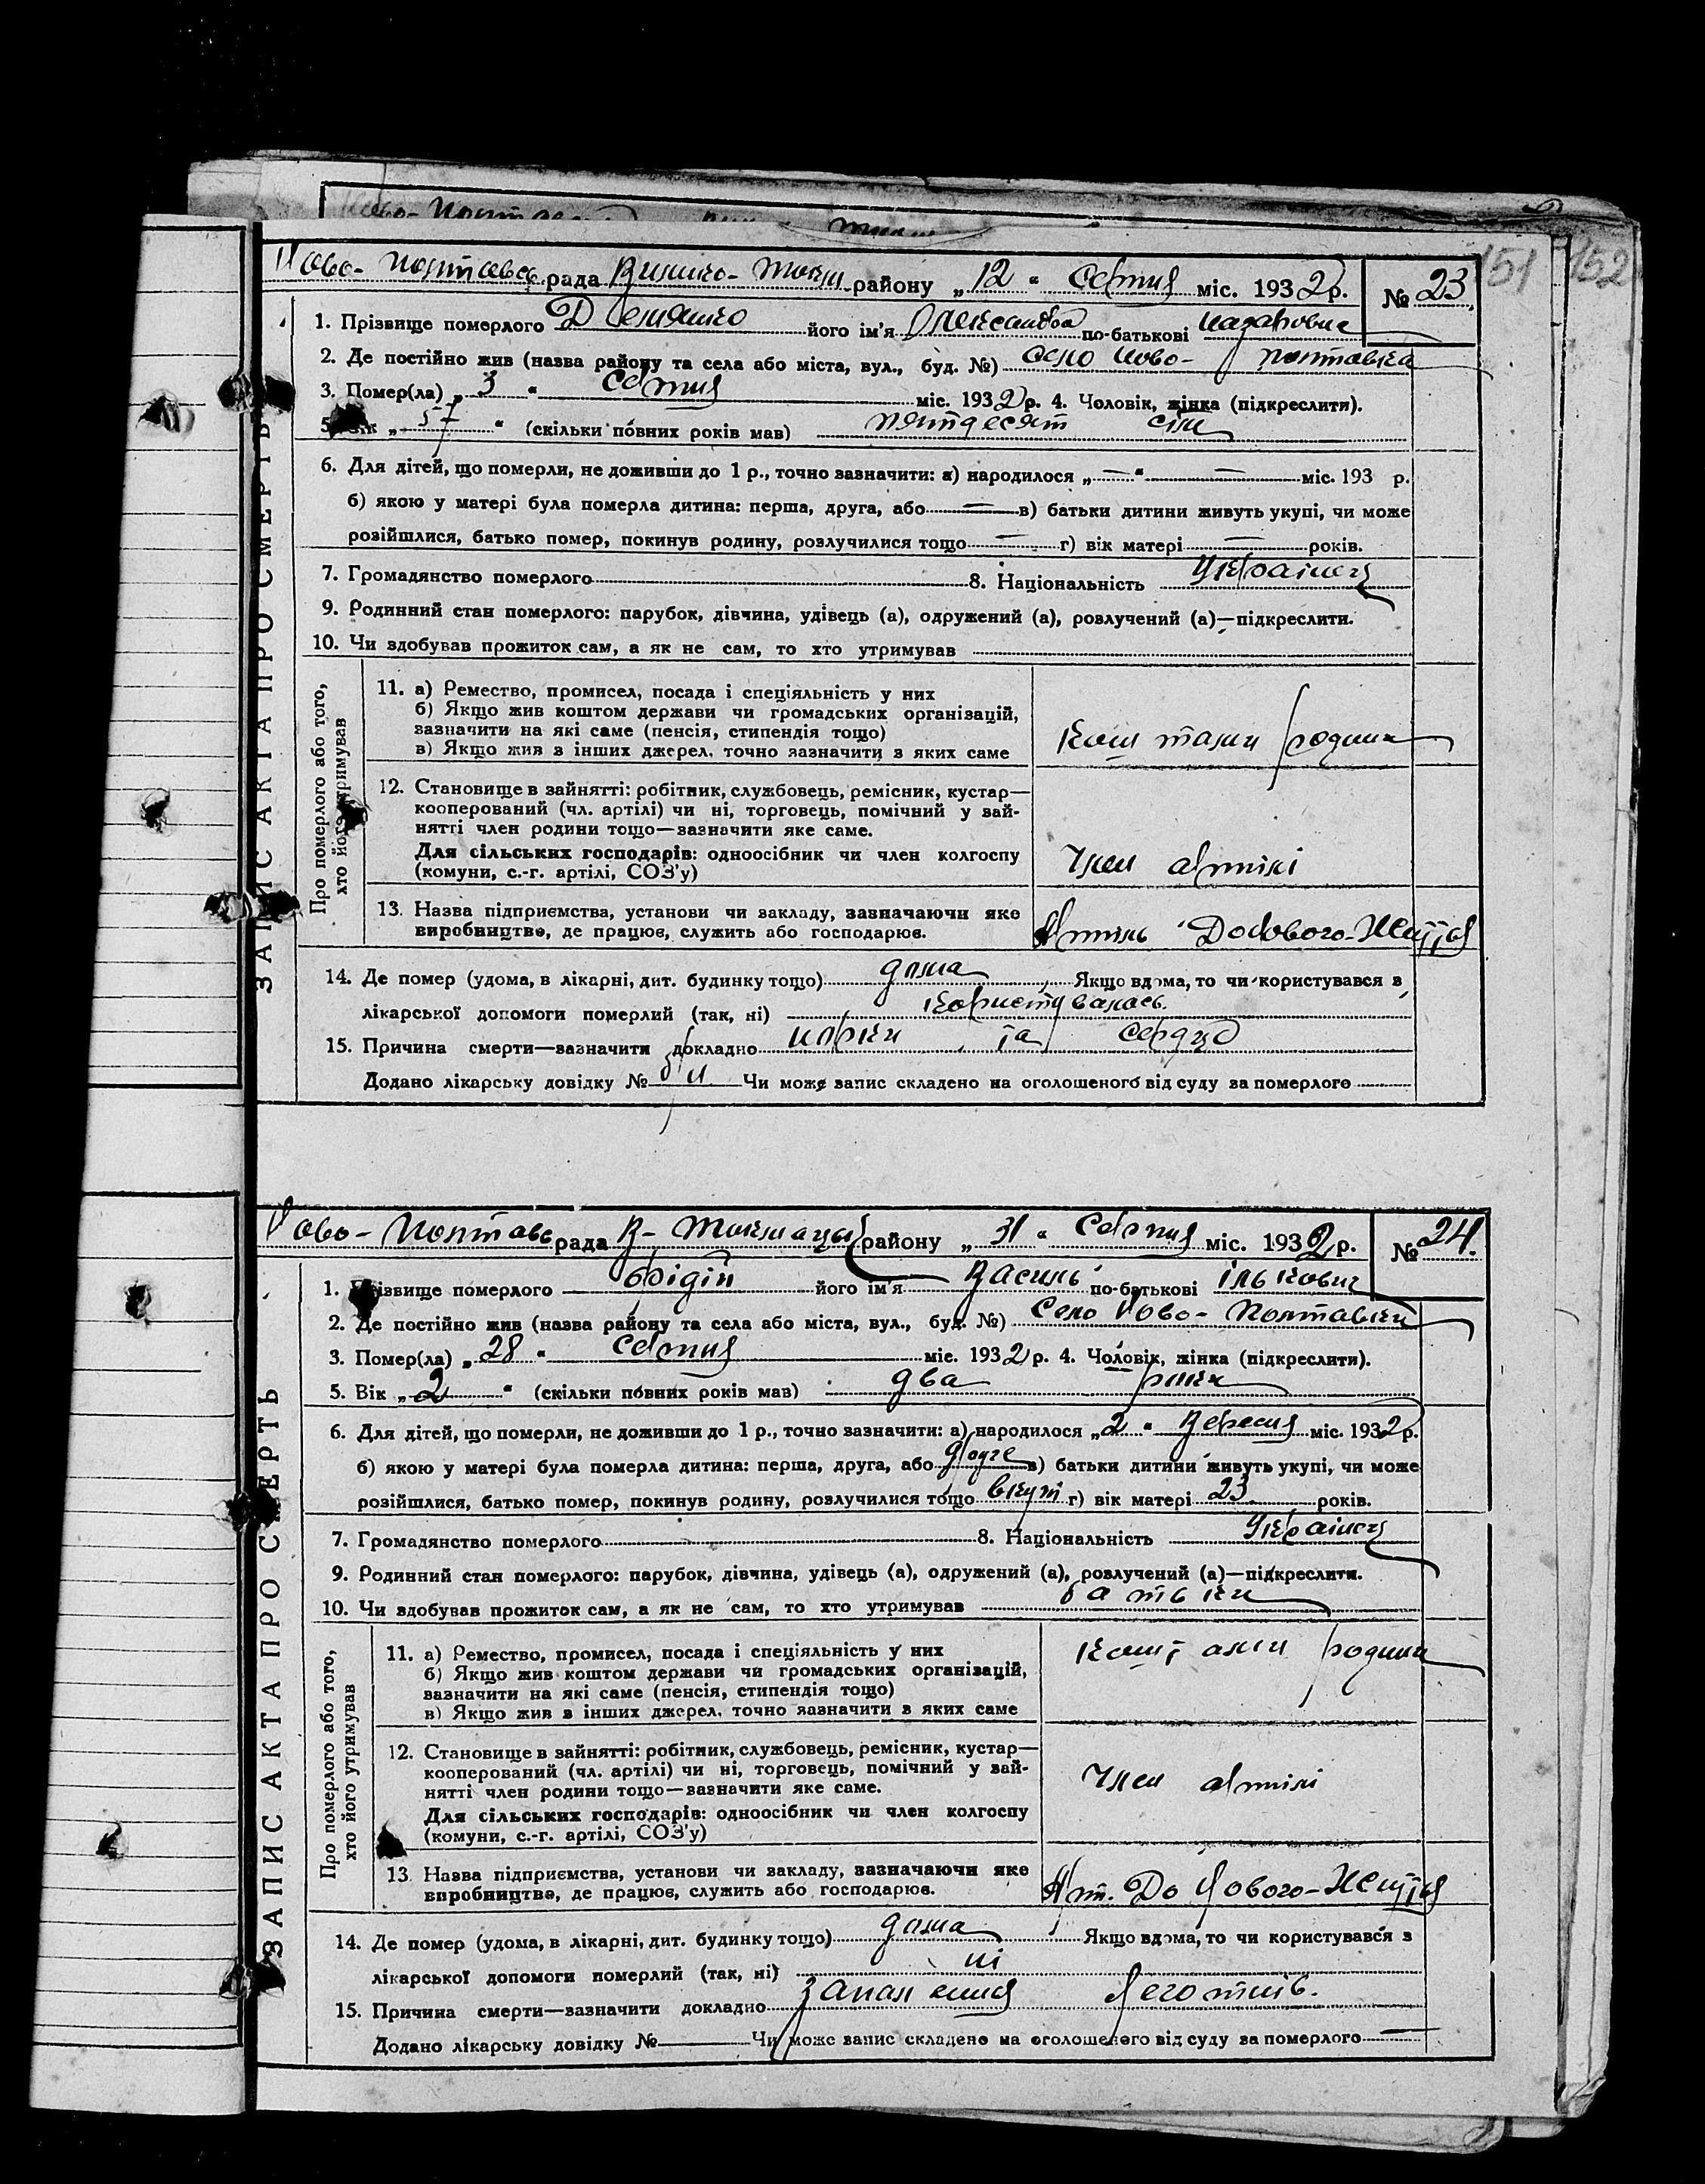 151 152
Ново-Полтавсь рада Велико-Токм району „12“ Серпня міс. 1932 р. № 23
1. Прізвище померлого його ім'я Олександра по-батькові Назаровна
2. Де постійно жив (назва району та села або міста, вул., буд. №) село Ново-Полтавка
3. Помер(ла) „3“ Серпня міс. 1932 р. 4. Чоловік, жінка (підкреслити).
5. Вік „57“ (скільки повних років мав) пятдесят сім
6. Для дітей, що померли, не доживши до 1 р., точно зазначити: а) народилося „—“ — міс. 193 р.
б) якою у матері була померла дитина: перша, друга, або — в) батьки дитини живуть укупі, чи може
розійшлися, батько помер, покинув родину, розлучилися тощо — г) вік матері — років.
7. Громадянство померлого 8. Національність Українец
9. Родинний стан померлого: парубок, дівчина, удівець (а), одружений (а), розлучений (а)—підкреслити.
10. Чи здобував прожиток сам, а як не сам, то хто утримував
ЗАПИС АКТА ПРО СМЕРТЬ
Про померлого або того, хто його утримував
11. а) Ремество, промисел, посада і спеціяльність у них
б) Якщо жив коштом держави чи громадських організацій,
зазначити на які саме (пенсія, стипендія тощо)
в) Якщо жив з інших джерел, точно зазначити з яких саме
Коштами родини
12. Становище в зайнятті: робітник, службовець, ремісник, кустар—
кооперований (чл. артілі) чи ні, торговець, помічний у зай-
нятті член родини тощо—зазначити яке саме.
Для сільських господарів: одноосібник чи член колгоспу
(комуни, с.-г. артілі, СОЗ'у)
Член артілі
13. Назва підприємства, установи чи закладу, зазначаючи яке
виробництво, де працює, служить або господарює.
Артіль До Нового-Життя
14. Де помер (удома, в лікарні, дит. будинку тощо) дома Якщо вдома, то чи користувався з
лікарської допомоги померлий (так, ні) користувалась
15. Причина смерти—зазначити докладно нирки та серця
Додано лікарську довідку № б/н Чи може запис складено на оголошеного від суду за померлого
Ново-Полтавс рада В-Токмацьк району „31“ Серпня міс. 1932 р. № 24.
1. Прізвище померлого його ім'я Василь по-батькові Ількович
2. Де постійно жив (назва району та села або міста, вул., буд. №) Село Ново-Полтавки
3. Помер(ла) „28“ Серпня міс. 1932 р. 4. Чоловік, жінка (підкреслити).
5. Вік „2“ (скільки повних років мав) два роки
6. Для дітей, що померли, не доживши до 1 р., точно зазначити: а) народилося „2“ Вересня міс. 1932 р.
б) якою у матері була померла дитина: перша, друга, або друге в) батьки дитини живуть укупі, чи може
розійшлися, батько помер, покинув родину, розлучилися тощо вкупі г) вік матері 23 років.
7. Громадянство померлого 8. Національність Українец
9. Родинний стан померлого: парубок, дівчина, удівець (а), одружений (а), розлучений (а)—підкреслити.
10. Чи здобував прожиток сам, а як не сам, то хто утримував батьки
ЗАПИС АКТА ПРО СМЕРТЬ
Про померлого або того, хто його утримував
11. а) Ремество, промисел, посада і спеціяльність у них
б) Якщо жив коштом держави чи громадських організацій,
зазначити на які саме (пенсія, стипендія тощо)
в) Якщо жив з інших джерел, точно зазначити з яких саме
Коштами родини
12. Становище в зайнятті: робітник, службовець, ремісник, кустар—
кооперований (чл. артілі) чи ні, торговець, помічний у зай-
нятті член родини тощо—зазначити яке саме.
Для сільських господарів: одноосібник чи член колгоспу
(комуни, с.-г. артілі, СОЗ'у)
Член артілі
13. Назва підприємства, установи чи закладу, зазначаючи яке
виробництво, де працює, служить або господарює.
Арт. До Нового-Життя
14. Де помер (удома, в лікарні, дит. будинку тощо) дома Якщо вдома, то чи користувався з
лікарської допомоги померлий (так, ні) ні
15. Причина смерти—зазначити докладно Запалення Леготнів.
Додано лікарську довідку № — Чи може запис складено на оголошеного від суду за померлого —